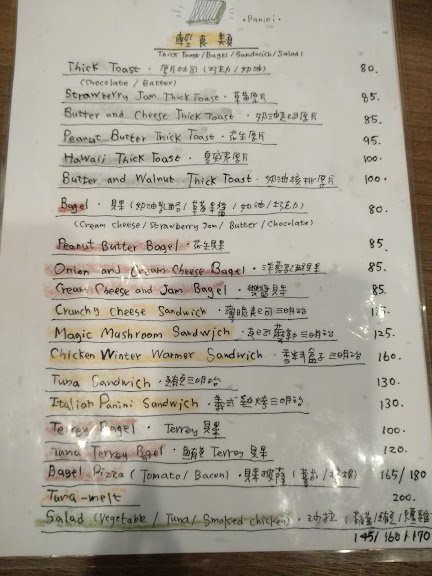 · Panini ·
輕食類
Thick Toast/Bagel/Sandwich/Salad)
Thick Toast · 厚片吐司 (巧克力/奶油) 80.
(Chocolate / Batter)
Strawberry Jam Thick Toast · 草莓厚片 85.
Butter and Cheese Thick Toast · 奶油起司厚片 85.
Peanut Butter Thick Toast · 花生厚片 95.
Hawaii Thick Toast · 夏威夷厚片 100.
Butter and Walnut Thick Toast · 奶油核桃厚片 100.
Bagel · 貝果 (奶油乳酪/草莓果醬/奶油/巧克力) 80.
(Cream Cheese / Strawberry Jam / Butter / Chocolate)
Peanut Butter Bagel · 花生貝果 85.
Onion and Cream Cheese Bagel · 貝果 85.
Cream Cheese and Jam Bagel · 貝果 85.
Crunchy Cheese Sandwich · 薄脆起司三明治
Magic Mushroom Sandwich · 起司蘑菇三明治 125.
Chicken Winter Warmer Sandwich · 三明治 160.
Tuna Sandwich · 鮪魚三明治 130.
Italian Panini Sandwich · 義式熱烤三明治 130.
Terroy Bagel · Terroy 貝果 100.
Tuna Terroy Bagel · 鮪魚 Terroy 貝果 120.
Bagel Pizza (Tomato / Bacon) · 貝果披薩 165/180
Tuna-melt 200.
Salad (Vegetable / Tuna / Smoked chicken) · 沙拉
145/160/170